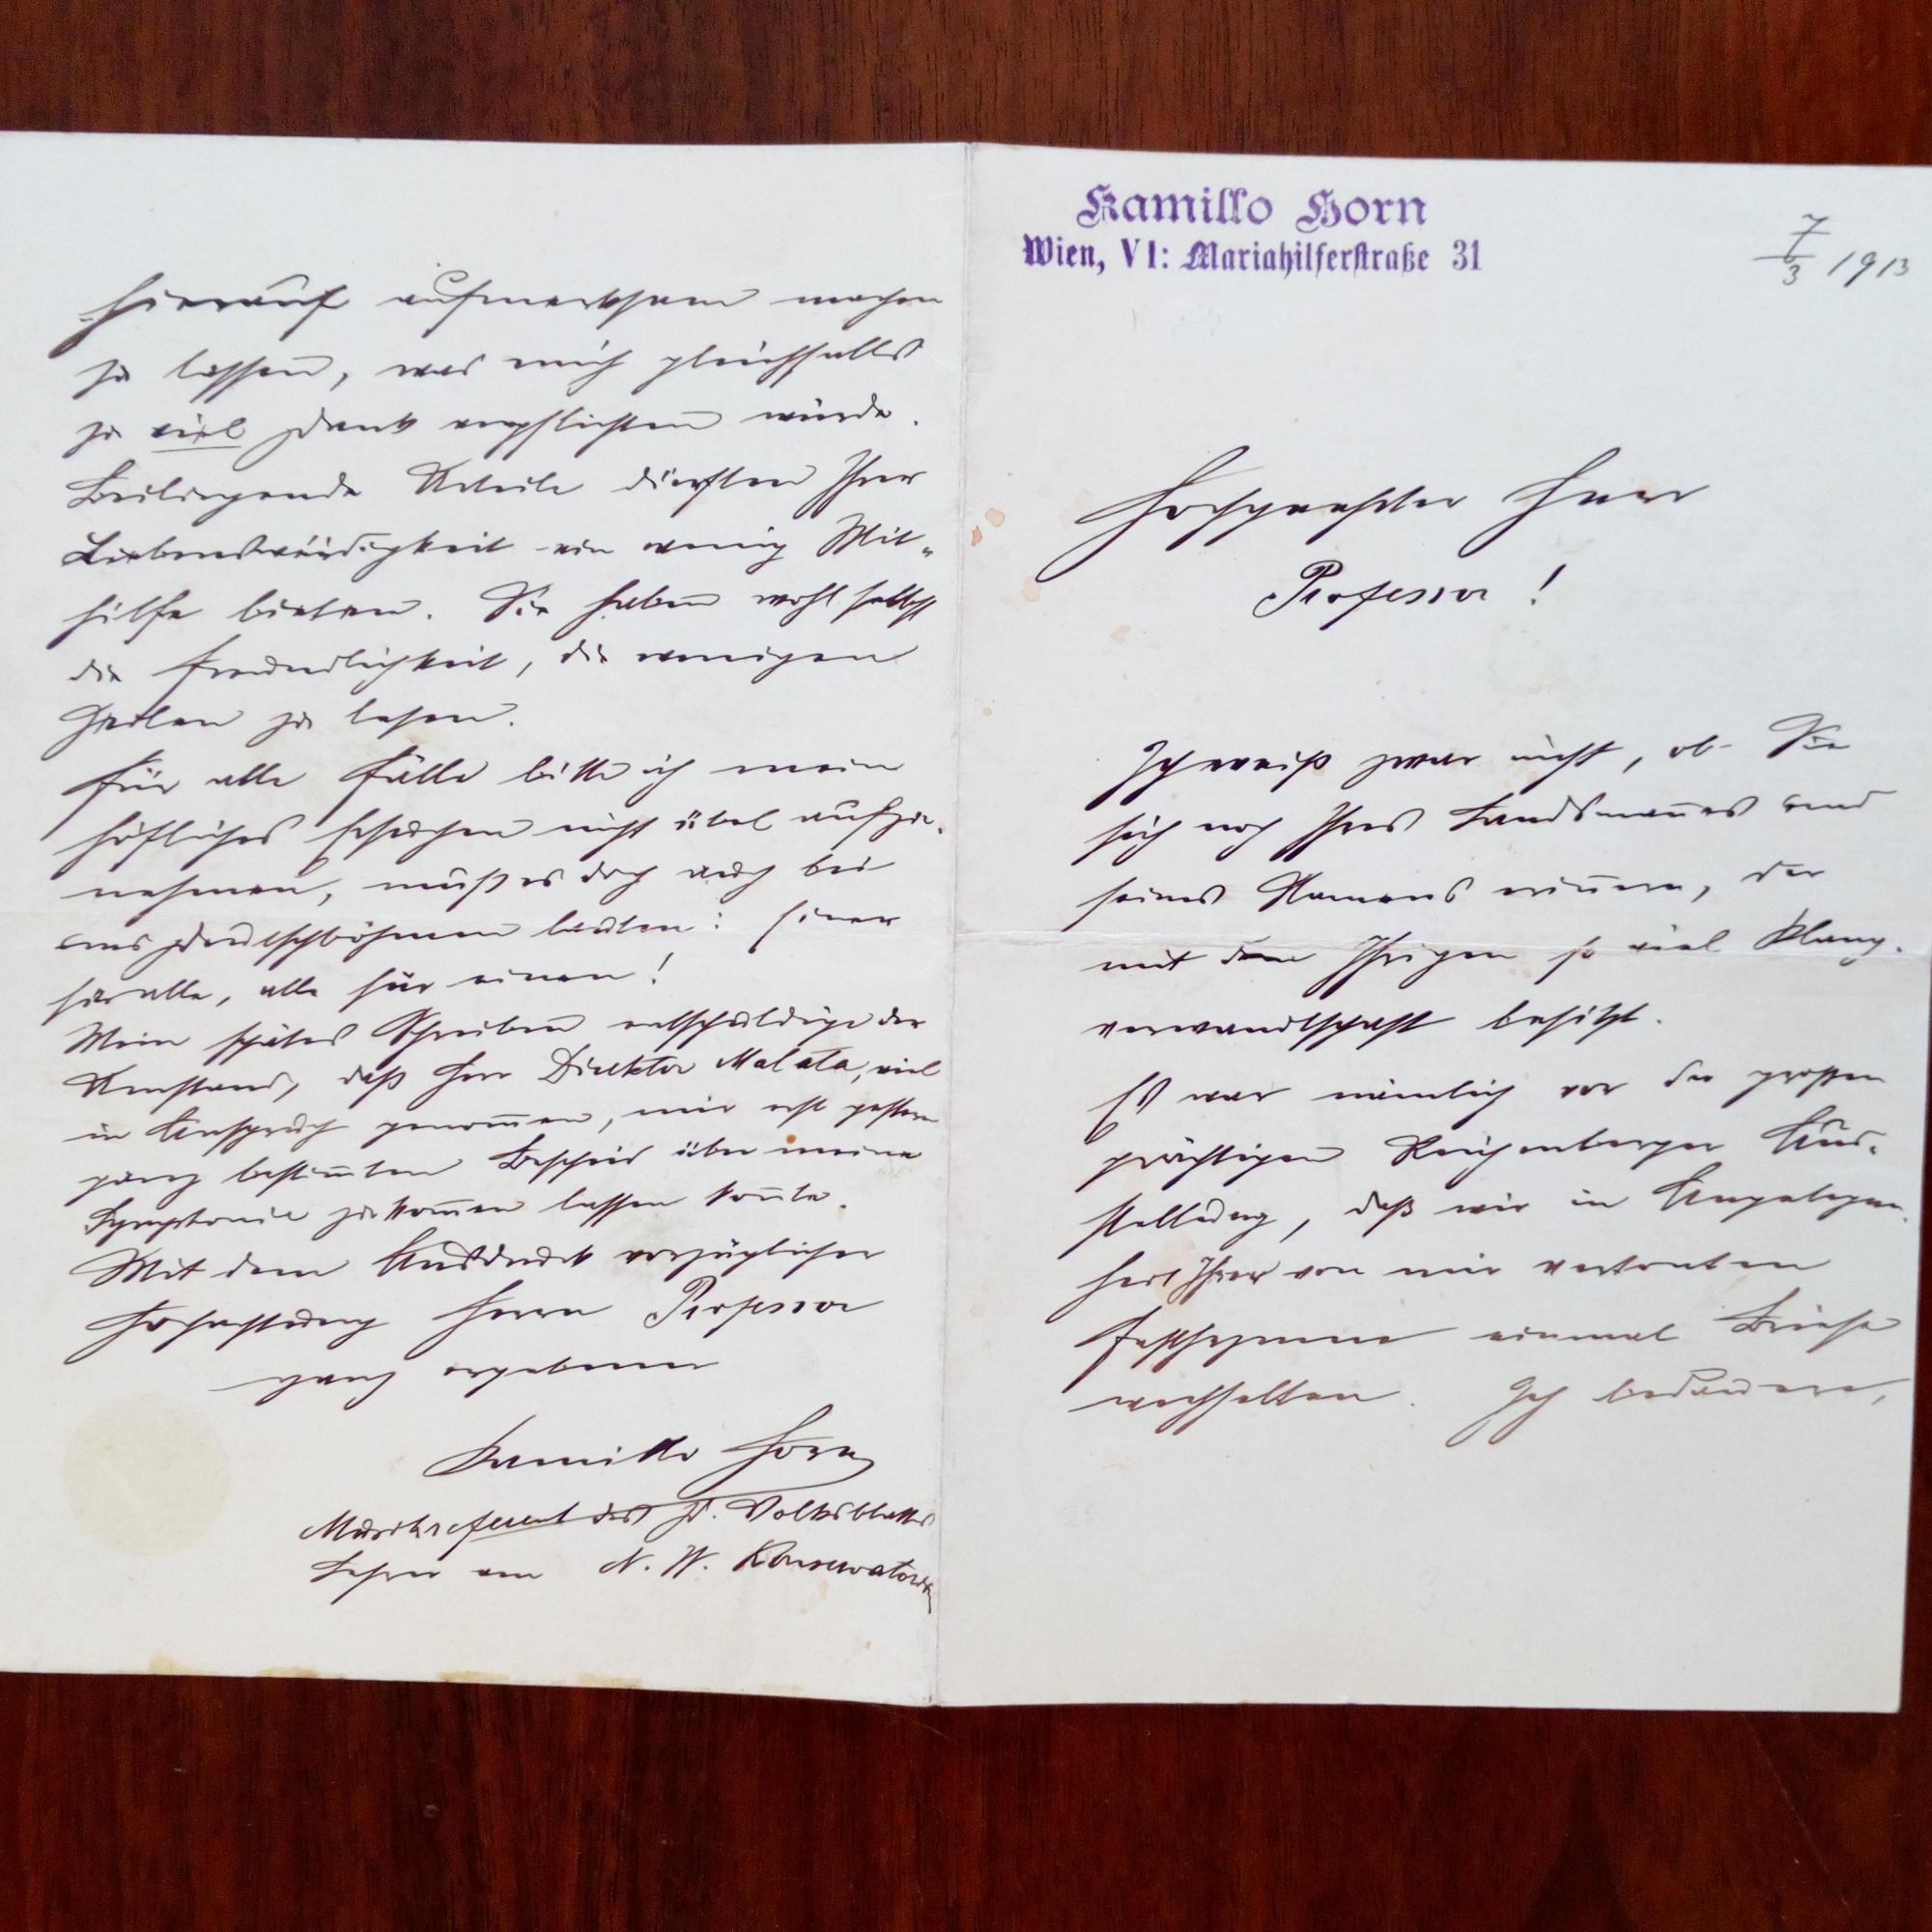 Kamillo Horn
Wien, VI: Mariahilferstraße 31
7/3 1913
Hochgeehrter Herr
Professor!
Ich weiß zwar nicht, ob Sie
sich noch Ihres Landsmannes und
seines Namens erinnern, der
mit dem Ihrigen so viel Klang-
verwandtschaft besitzt.
Es war nämlich vor der großen
prächtigen Reichenberger Aus-
stellung, daß wir in Angelegen-
heit Ihrer von mir vertonten
Festhymne einmal Briefe
wechselten. Ich bedauere,
hierauf aufmerksam machen
zu lassen, was mich gleichfalls
zu viel Dank verpflichten würde.
Beiliegende Urteile dürften Ihrer
Liebenswürdigkeit ein wenig Mit-
hilfe bieten. Sie haben wohl selbst
die Freundlichkeit, die wenigen
Zeilen zu lesen.
Für alle Fälle bitte ich mein
höfliches Ersuchen nicht übel aufzu-
nehmen, muß es doch auch bei
uns Deutschböhmen lauten: Einer
für alle, alle für einen!
Mein spätes Schreiben entschuldige der
Umstand, daß Herr Direktor Malata, viel
in Anspruch genommen, mir erst gestern
ganz bestimmten Bescheid über meine
Symphonie zukommen lassen konnte.
Mit dem Ausdruck vorzüglicher
Hochachtung Herrn Professor
ganz ergebener
Kamillo Horn
Musikreferent des D. Volksblattes
Lehrer am N. W. Konservatorium